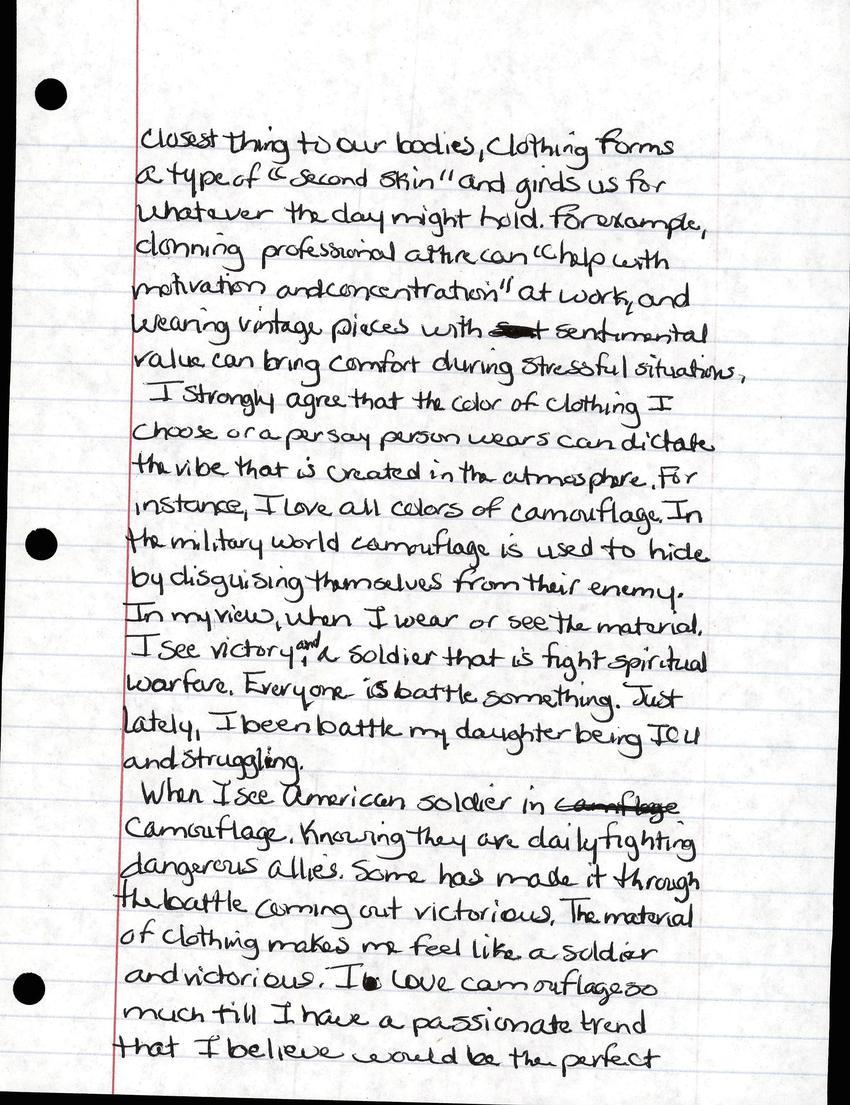 closest thing to our bodies, clothing forms
a type of "second skin" and girds us for
whatever the day might hold. For example,
donning professional attire can "help with
motivation and concentration" at work, and
wearing vintage pieces with sentimental
value can bring comfort during stressful situations.
I strongly agree that the color of clothing I
choose or a per say person wears can dictate
the vibe that is created in the atmosphere. For
instance, I love all colors of camouflage. In
the military world camouflage is used to hide
by disguising themselves from their enemy.
In my view, when I wear or see the material.
I see victory and a soldier that is fight spiritual
warfare. Everyone is battle something. Just
lately, I been battle my daughter being ICU
and struggling.
When I see American soldier in camflage
Camouflage. Knowing they are daily fighting
dangerous allies. Some has made it through
the battle coming out victorious. The material
of clothing makes me feel like a soldier
and victorious. I love camouflage so
much till I have a passionate trend
that I believe would be the perfect